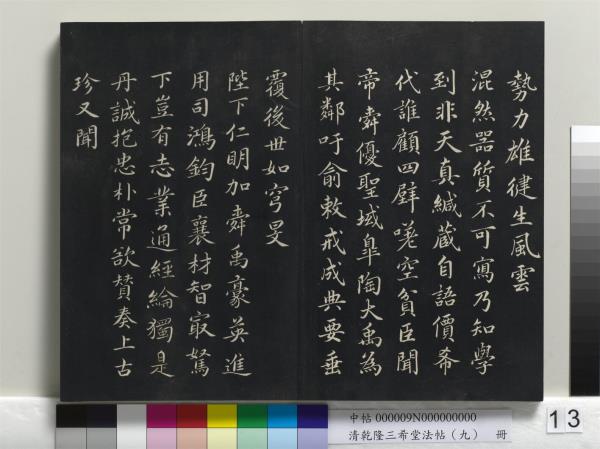 勢力雄健生風雲
混然器質不可寫乃知學
到非天真緘藏自語價希
代誰顧四壁嗟空貧臣聞
帝舜優聖域皐陶大禹為
其鄰吁俞敕戒成典要垂
覆後世如穹旻
陛下仁明加舜禹豪英進
用司鴻鈞臣襄材智最駑
下豈有志業通經綸獨是
丹誠抱忠朴常欲贊奏上古
珍又聞
中帖 000009N000000000
清乾隆三希堂法帖（九） 冊
13